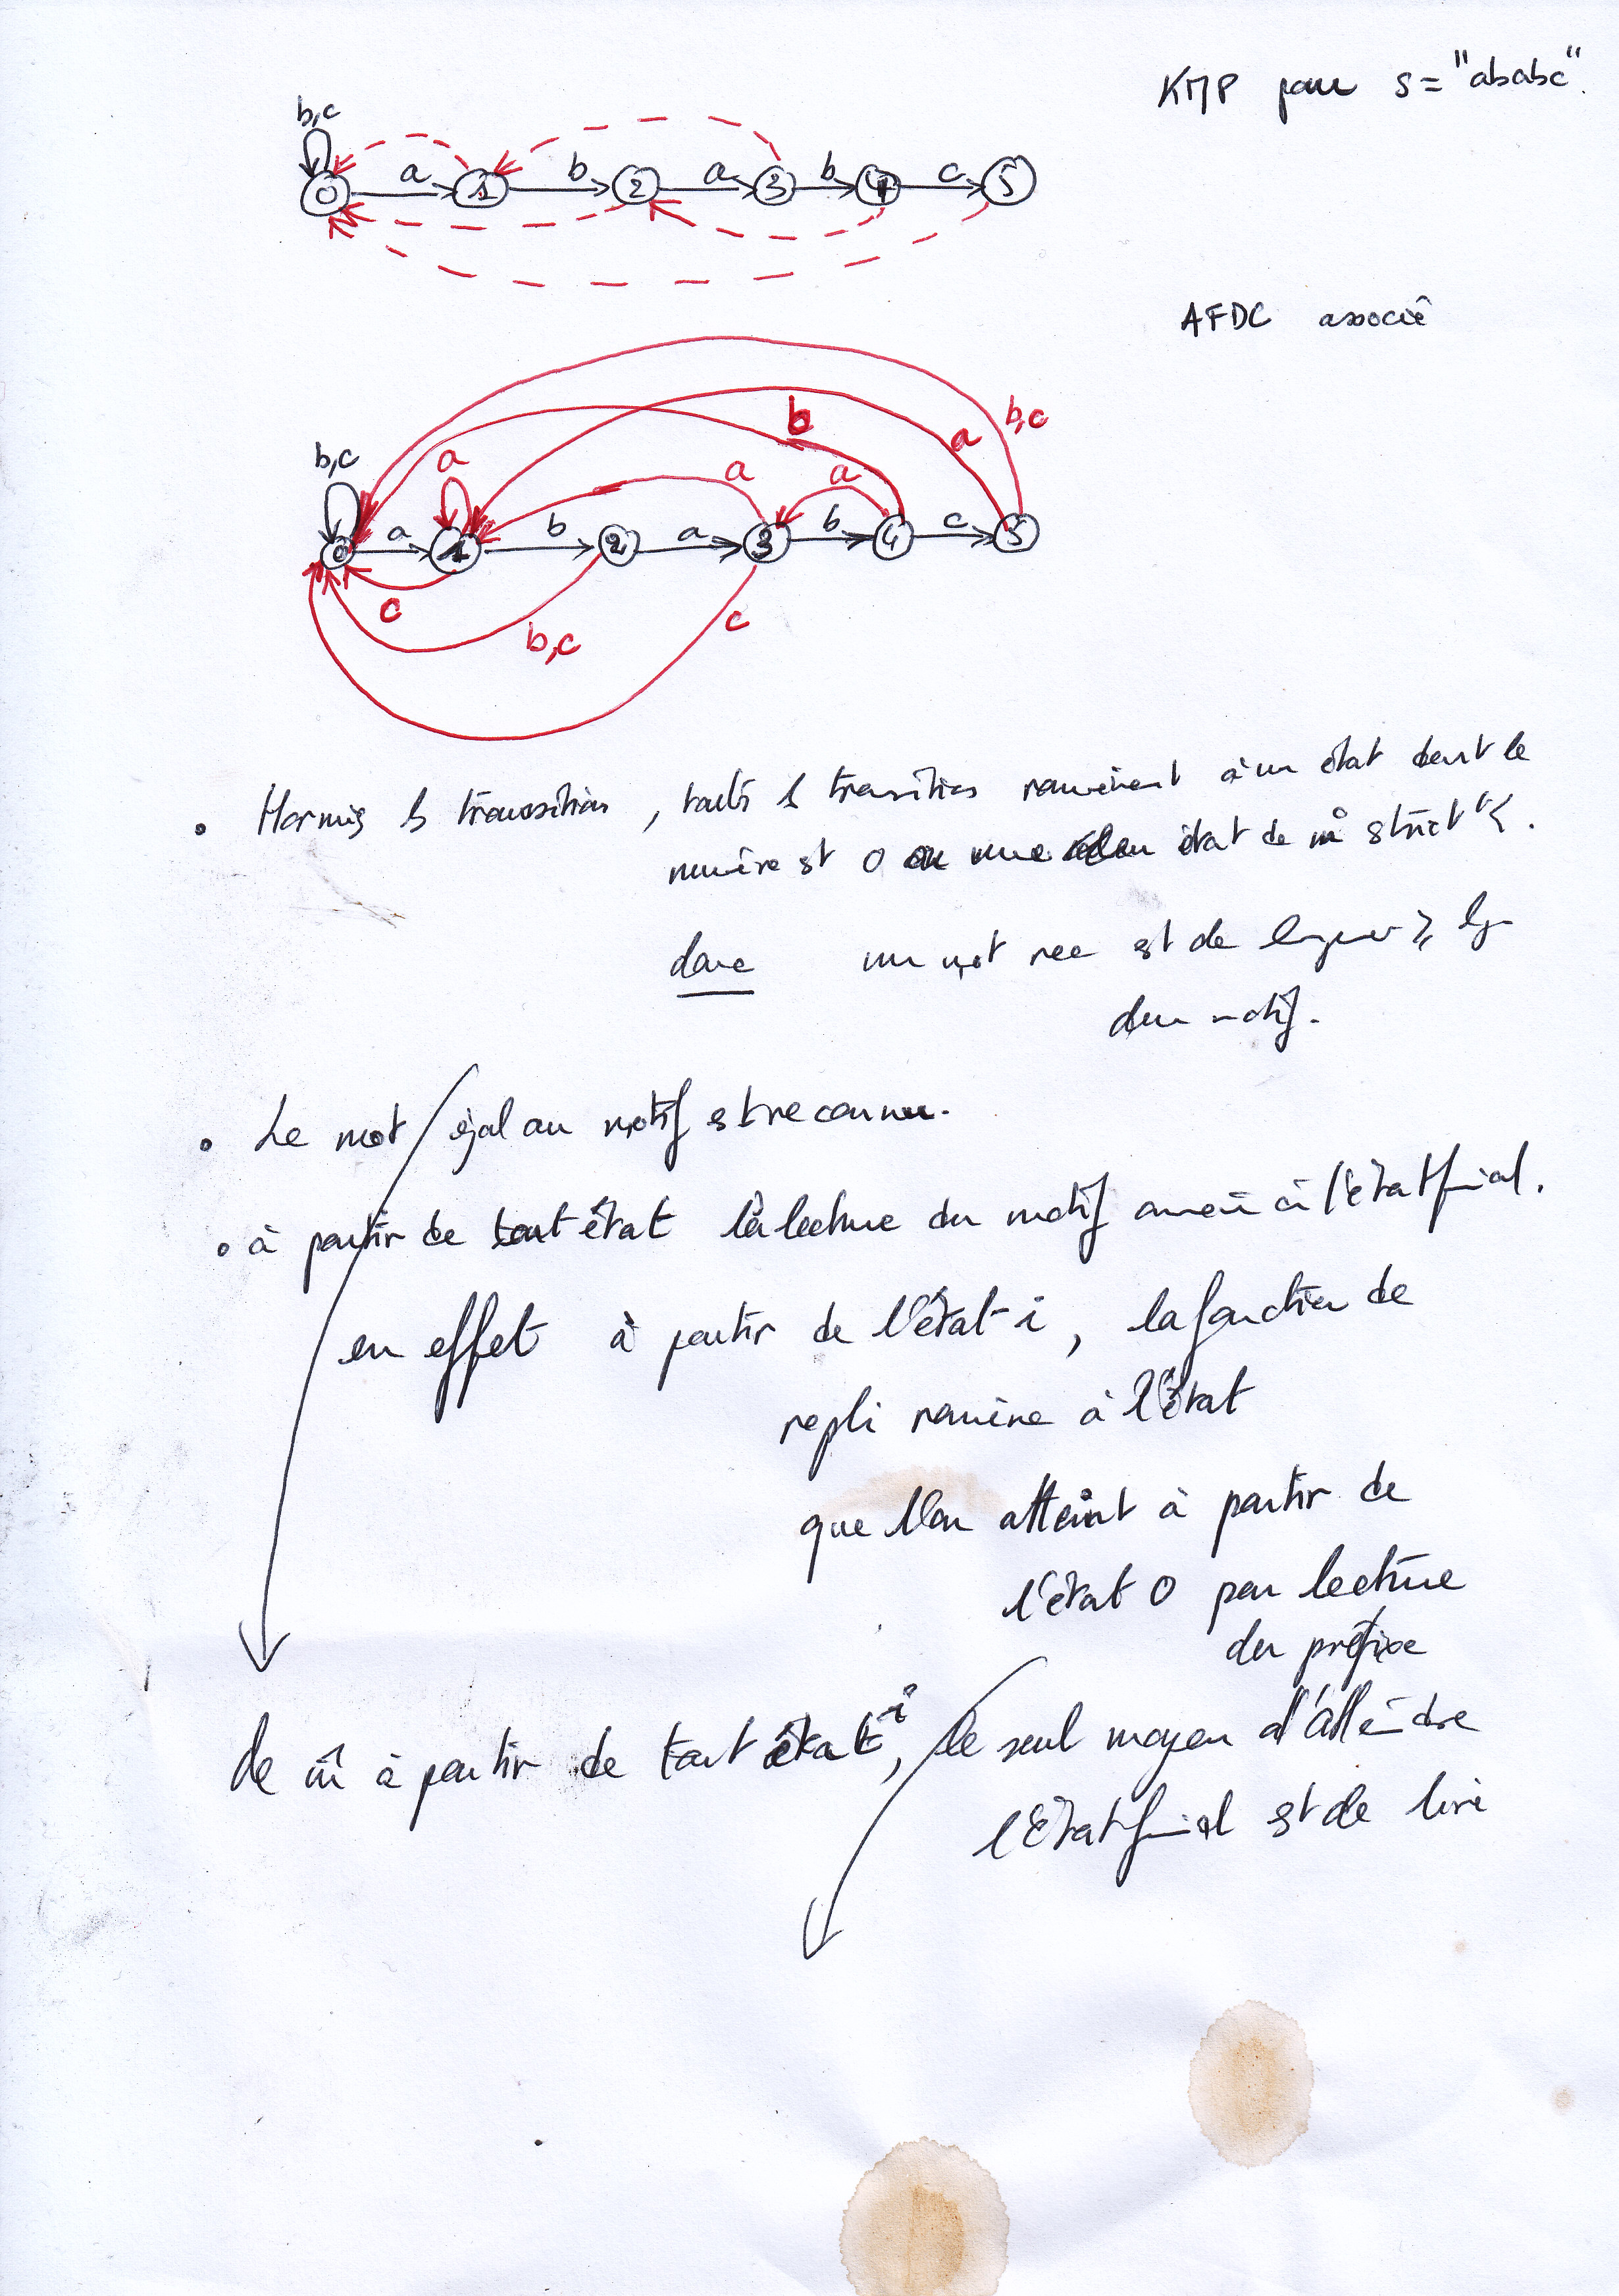 KMP pour s = "ababc".
b,c
0 a 1 b 2 a 3 b 4 c 5
AFDC associé
b,c
b
a
b,c
a
a
a
0 a 1 b 2 a 3 b 4 c 5
c
b,c
c
• Hormis ls transitions, touts ls transitions ramènent à un état dont le
numéro st 0 ou un état de n° strict t <.
donc un mot rec st de longueur ⩾ lg
du motif.
• Le mot égal au motif st reconnu.
• à partir de tout état la lecture du motif amène à l'état final.
en effet à partir de l'état i, la fonction de
repli ramène à l'état
que l'on atteint à partir de
l'état 0 par lecture
du préfixe
de m̂ à partir de tout état i, le seul moyen d'atteindre
l'état final st de lire